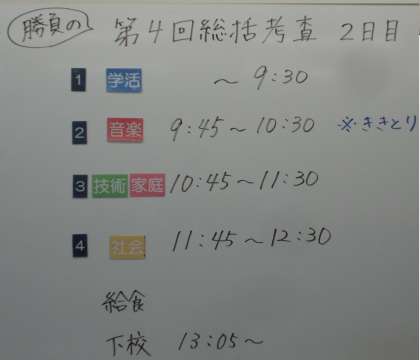 勝負の 第4回総括考査 2日目
1 学活 ～9:30
2 音楽 9:45～10:30 ※ききとり
3 技術 家庭 10:45～11:30
4 社会 11:45～12:30
給食
下校 13:05～